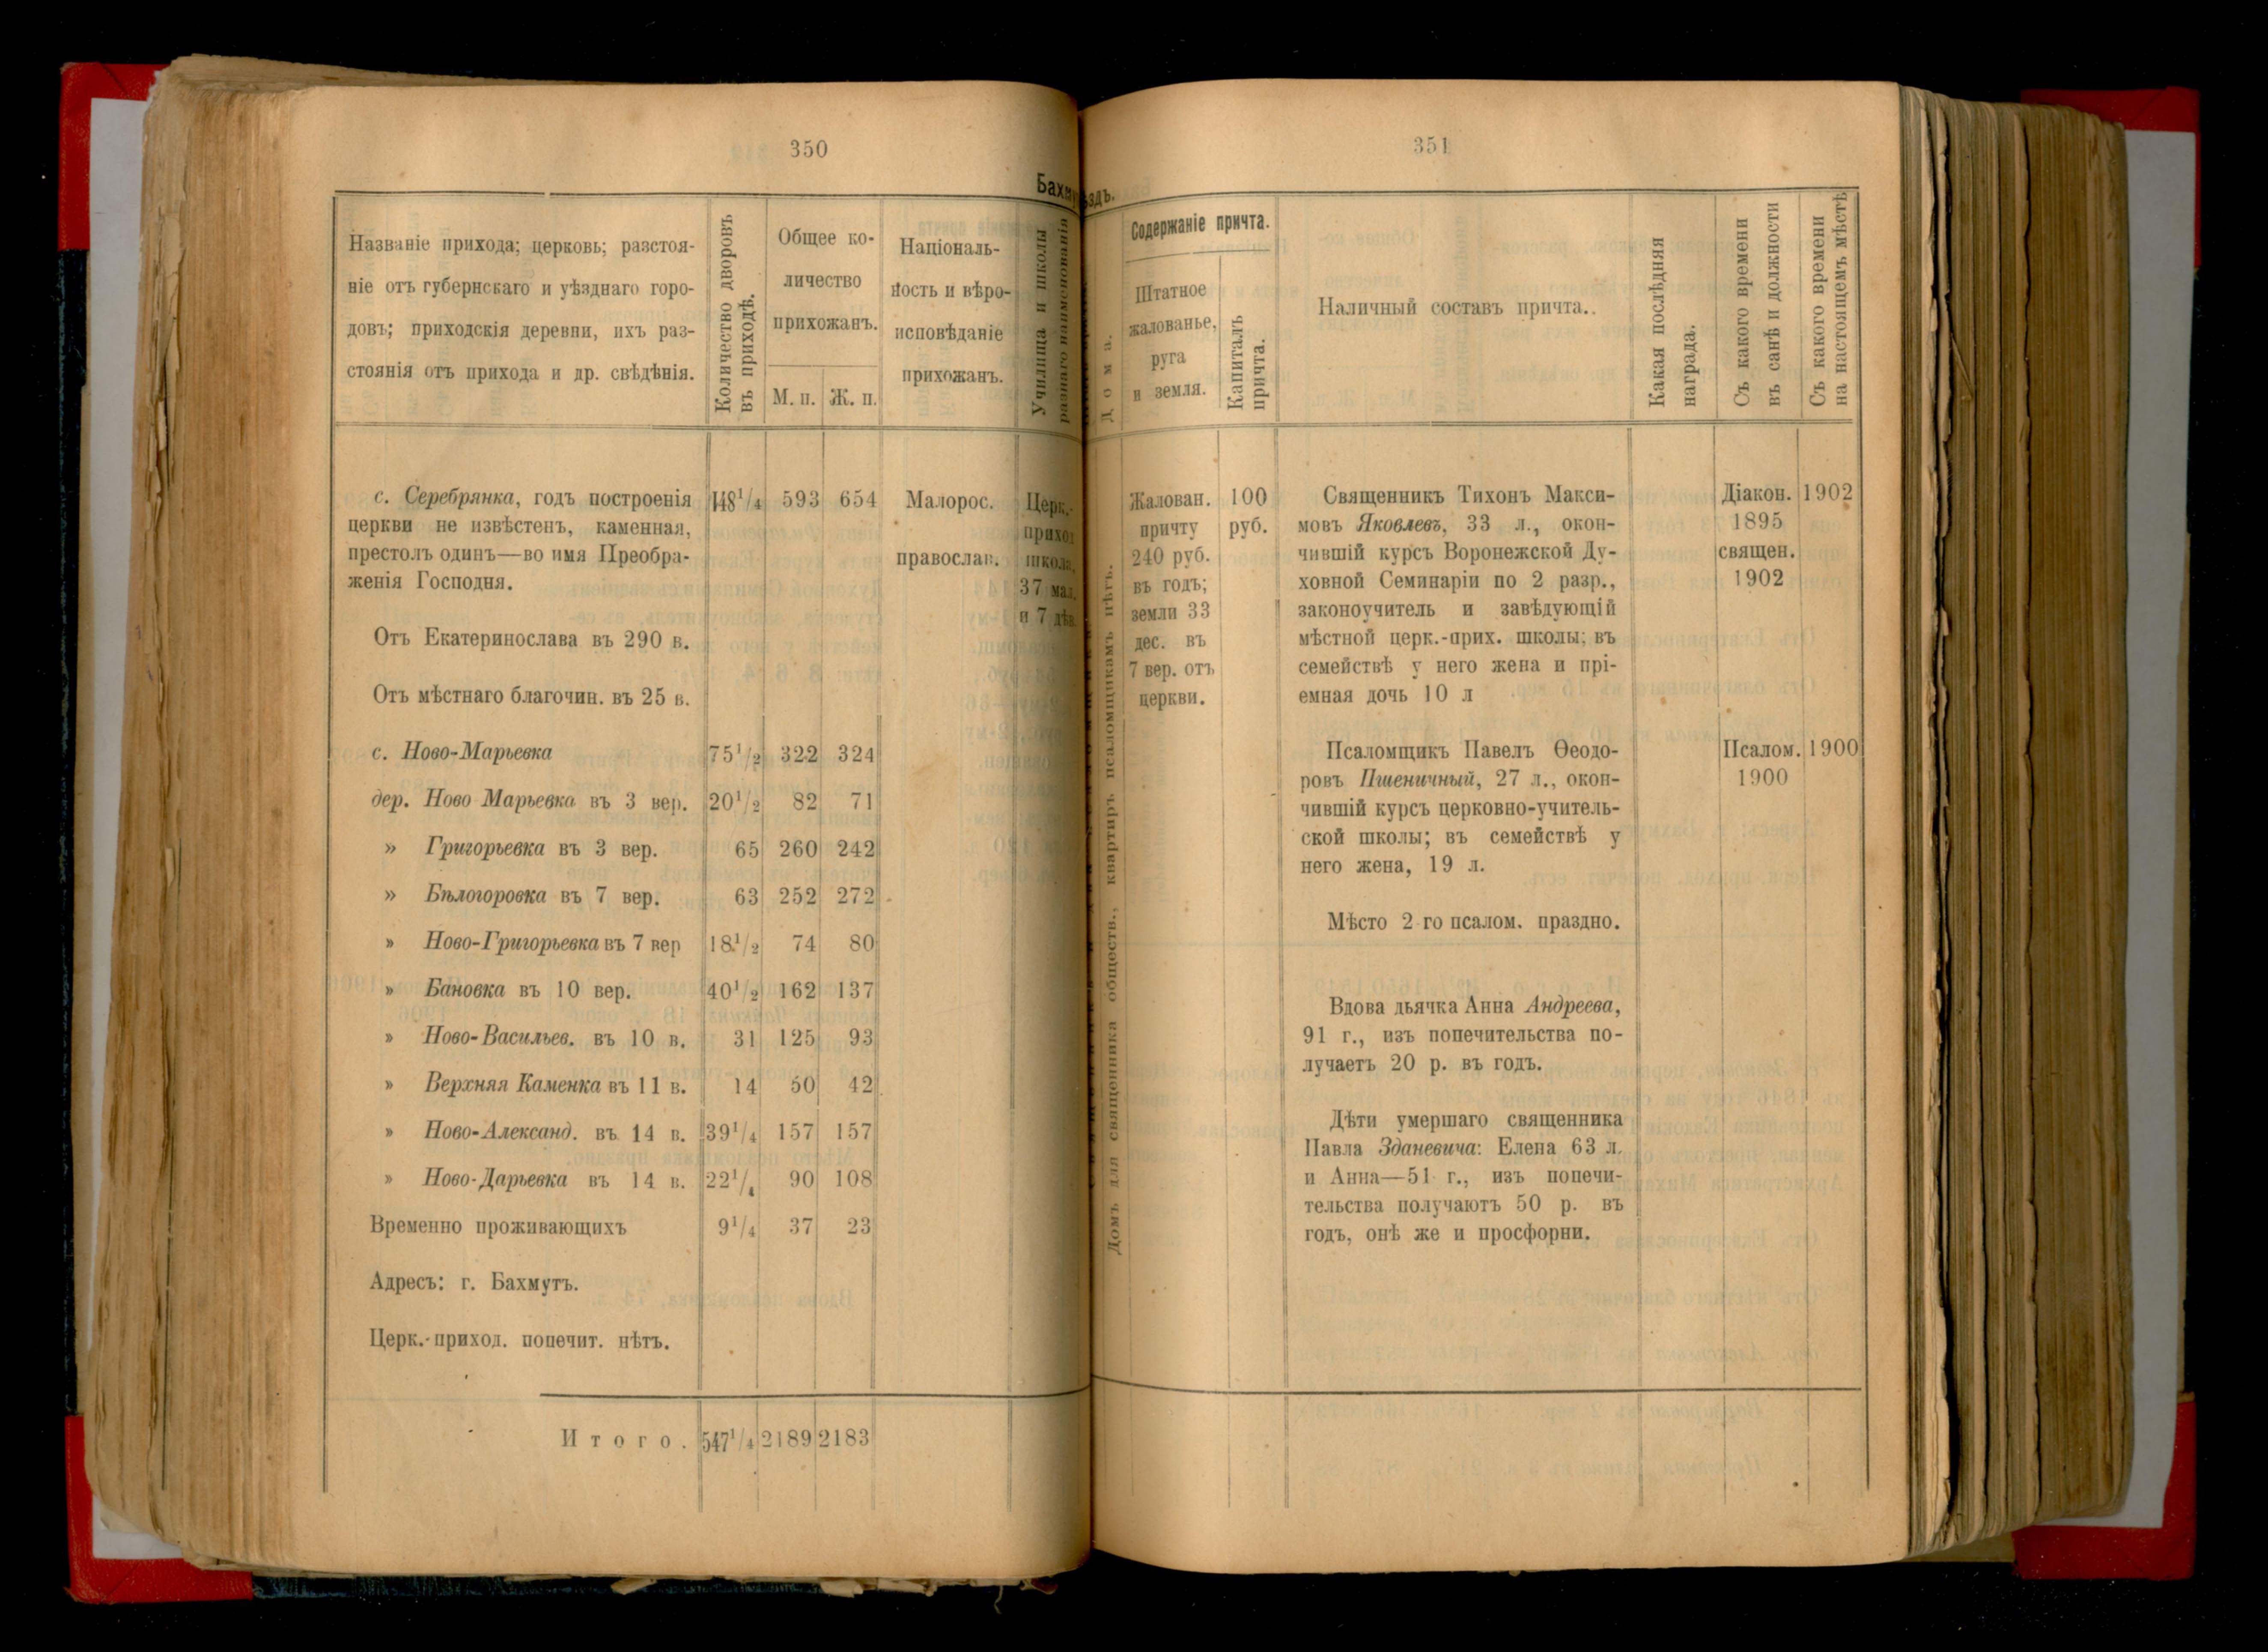 350
Бахму
Названіе прихода; церковь; разстоя-
ніе отъ губернскаго и уѣзднаго горо-
довъ; приходскія деревни, ихъ раз-
стоянія отъ прихода и др. свѣдѣнія.
Количество дворовъ
въ приходѣ.
Общее ко-
личество
прихожанъ.
М. п. Ж. п.
Національ-
ность и вѣро-
исповѣданіе
прихожанъ.
Училища и школы
разнаго наименованія
с. Серебрянка, годъ построенія 148¹/₄ 593 654 Малорос. Церк.-
церкви не извѣстенъ, каменная, приход
престолъ одинъ—во имя Преобра- православ. школа,
женія Господня. 37 мал.
и 7 дѣв.
Отъ Екатеринослава въ 290 в.
Отъ мѣстнаго благочин. въ 25 в.
с. Ново-Марьевка 75¹/₂ 322 324
дер. Ново Марьевка въ 3 вер. 20¹/₂ 82 71
» Григорьевка въ 3 вер. 65 260 242
» Бѣлогоровка въ 7 вер. 63 252 272
» Ново-Григорьевка въ 7 вер 18¹/₂ 74 80
» Бановка въ 10 вер. 40¹/₂ 162 137
» Ново-Васильев. въ 10 в. 31 125 93
» Верхняя Каменка въ 11 в. 14 50 42
» Ново-Александ. въ 14 в. 39¹/₄ 157 157
» Ново-Дарьевка въ 14 в. 22¹/₄ 90 108
Временно проживающихъ 9¹/₄ 37 23
Адресъ: г. Бахмутъ.
Церк.-приход. попечит. нѣтъ.
Итого. 547¹/₄ 2189 2183
351
ѣздъ.
Дома.
Содержаніе причта.
Штатное
жалованье,
руга
и земля.
Капиталъ
причта.
Наличный составъ причта..
Какая послѣдняя
награда.
Съ какого времени
въ санѣ и должности
Съ какого времени
на настоящемъ мѣстѣ
Домъ для священника обществ., квартиръ псаломщикамъ нѣтъ.
Жалован.
причту
240 руб.
въ годъ;
земли 33
дес. въ
7 вер. отъ
церкви.
100
руб.
Священникъ Тихонъ Макси-
мовъ Яковлевъ, 33 л., окон-
чившій курсъ Воронежской Ду-
ховной Семинаріи по 2 разр.,
законоучитель и завѣдующій
мѣстной церк.-прих. школы; въ
семействѣ у него жена и прі-
емная дочь 10 л
Діакон. 1902
1895
священ.
1902
Псаломщикъ Павелъ Ѳеодо-
ровъ Пшеничный, 27 л., окон-
чившій курсъ церковно-учитель-
ской школы; въ семействѣ у
него жена, 19 л.
Псалом. 1900
1900
Мѣсто 2 го псалом. праздно.
Вдова дьячка Анна Андреева,
91 г., изъ попечительства по-
лучаетъ 20 р. въ годъ.
Дѣти умершаго священника
Павла Зданевича: Елена 63 л.
и Анна—51 г., изъ попечи-
тельства получаютъ 50 р. въ
годъ, онѣ же и просфорни.